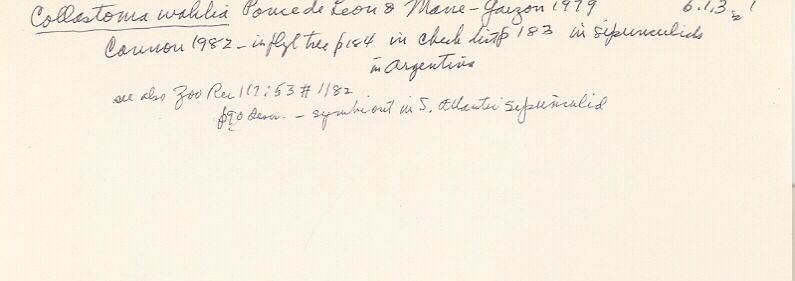 Collastoma wahlia Ponce de Leon & Mane-Garzon 1979 6.1.3
Cannon 1982 - in fyl tree p 184 in check list p 183 in sipunculids
in Argentina
see also Zoo Rec 117:53 # 1182
p90 descr. - symbiont in S. Atlantic sipunculid